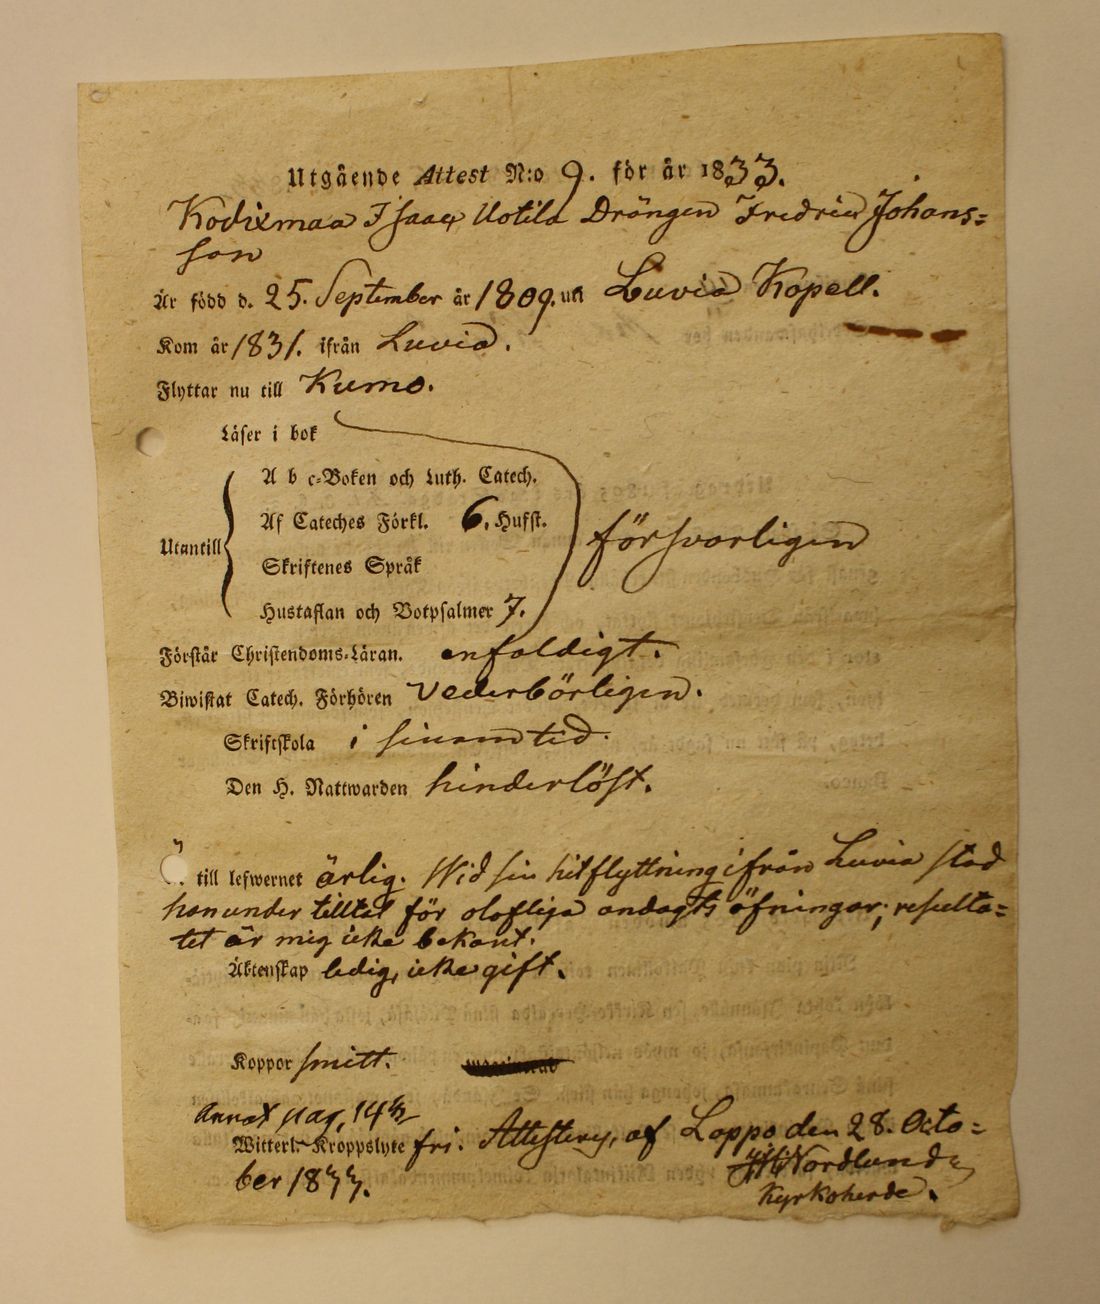 Utgående Attest N:o 9. för år 1833.
Kodixmaa Isaac Uotila Drängen Fredric Johans=
son
Är född d. 25. September år 1809. uti Luvia Kapell.
Kom år 1831. ifrån Luvia.
Flyttar nu till Kumo.
Läser i bok
A b c-Boken och Luth. Catech.
Af Cateches Förkl. 6. Hufst.
försvarligen
Utantill
Skriftenes Språk
Hustaflan och Botpsalmer 7.
Förstår Christendoms-Läran. enfaldigt.
Biwistat Catech. Förhören vederbörligen.
Skriftskola i sinom tid.
Den H. Nattwarden hinderlöst.
till lefwernet ärlig. Wid sin hitflyttning ifrån Luvia stod
han under tilltal för olofliga andagts öfningar; resulta=
tet är mig icke bekant.
Äktenskap ledig, icke gift.
Koppor smitt.
Annat pag. 143
Witterl. Kroppslyte fri. Attesterar, af Lappo den 28. Octo=
ber 1833.
Nordlund
Kyrkoherde.